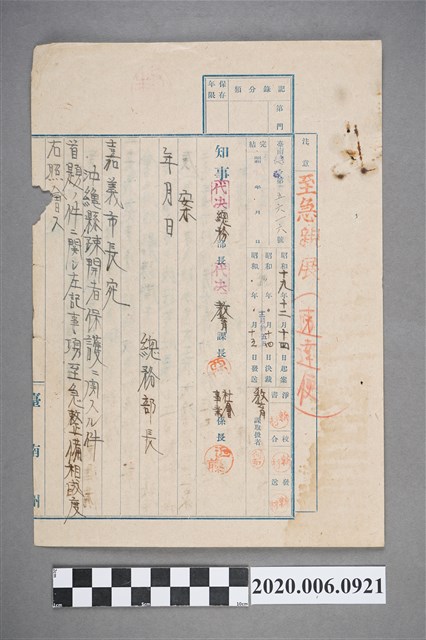 記錄分類
第 門
保存年限
注意
至急親展(速達便)
昭和十九年十二月十四日起案
昭和 年 月十四日決裁
昭和 年 月十五日發送
淨書
校合
發送
教育
知事代决總務部長代决教育課長
社會事業係長
案
年月日
總務部長
嘉義市長宛
沖繩縣疎開者保護ニ関スル件
首題ノ件ニ関シ左記事項至急整備相成度
右照會ス
臺南州
2020.006.0921